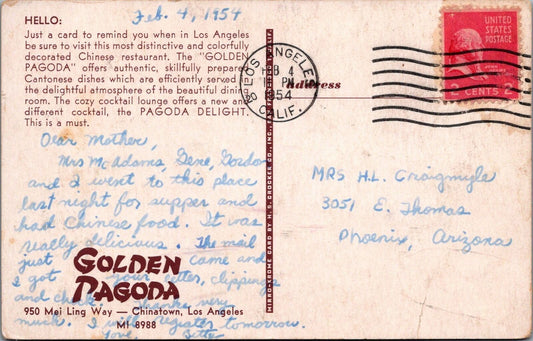 Feb. 4, 1954
HELLO:
Just a card to remind you when in Los Angeles
be sure to visit this most distinctive and colorfully
decorated Chinese restaurant. The "GOLDEN
PAGODA" offers authentic, skillfully prepared
Cantonese dishes which are efficiently served
the delightful atmosphere of the beautiful dining
room. The cozy cocktail lounge offers a new and
different cocktail, the PAGODA DELIGHT.
This is a must.
Dear Mother,
Mrs McAdams, Gene, Gordo
and I went to this place
last night for supper and
had Chinese food. It was
really delicious. The mail
just came and
I got your letter, clippings
and check. Thanks very
much. I will register tomorrow.
Love,
GOLDEN
PAGODA
950 Mei Ling Way — Chinatown, Los Angeles
MI 8988
MIRRO-KROME CARD BY H. S. CROCKER CO., INC.
LOS ANGELES
FEB 4
PM
1954
CALIF.
Address
UNITED
STATES
POSTAGE
2 CENTS 2
MRS H.L. Craigmyle
3051 E. Thomas
Phoenix, Arizona